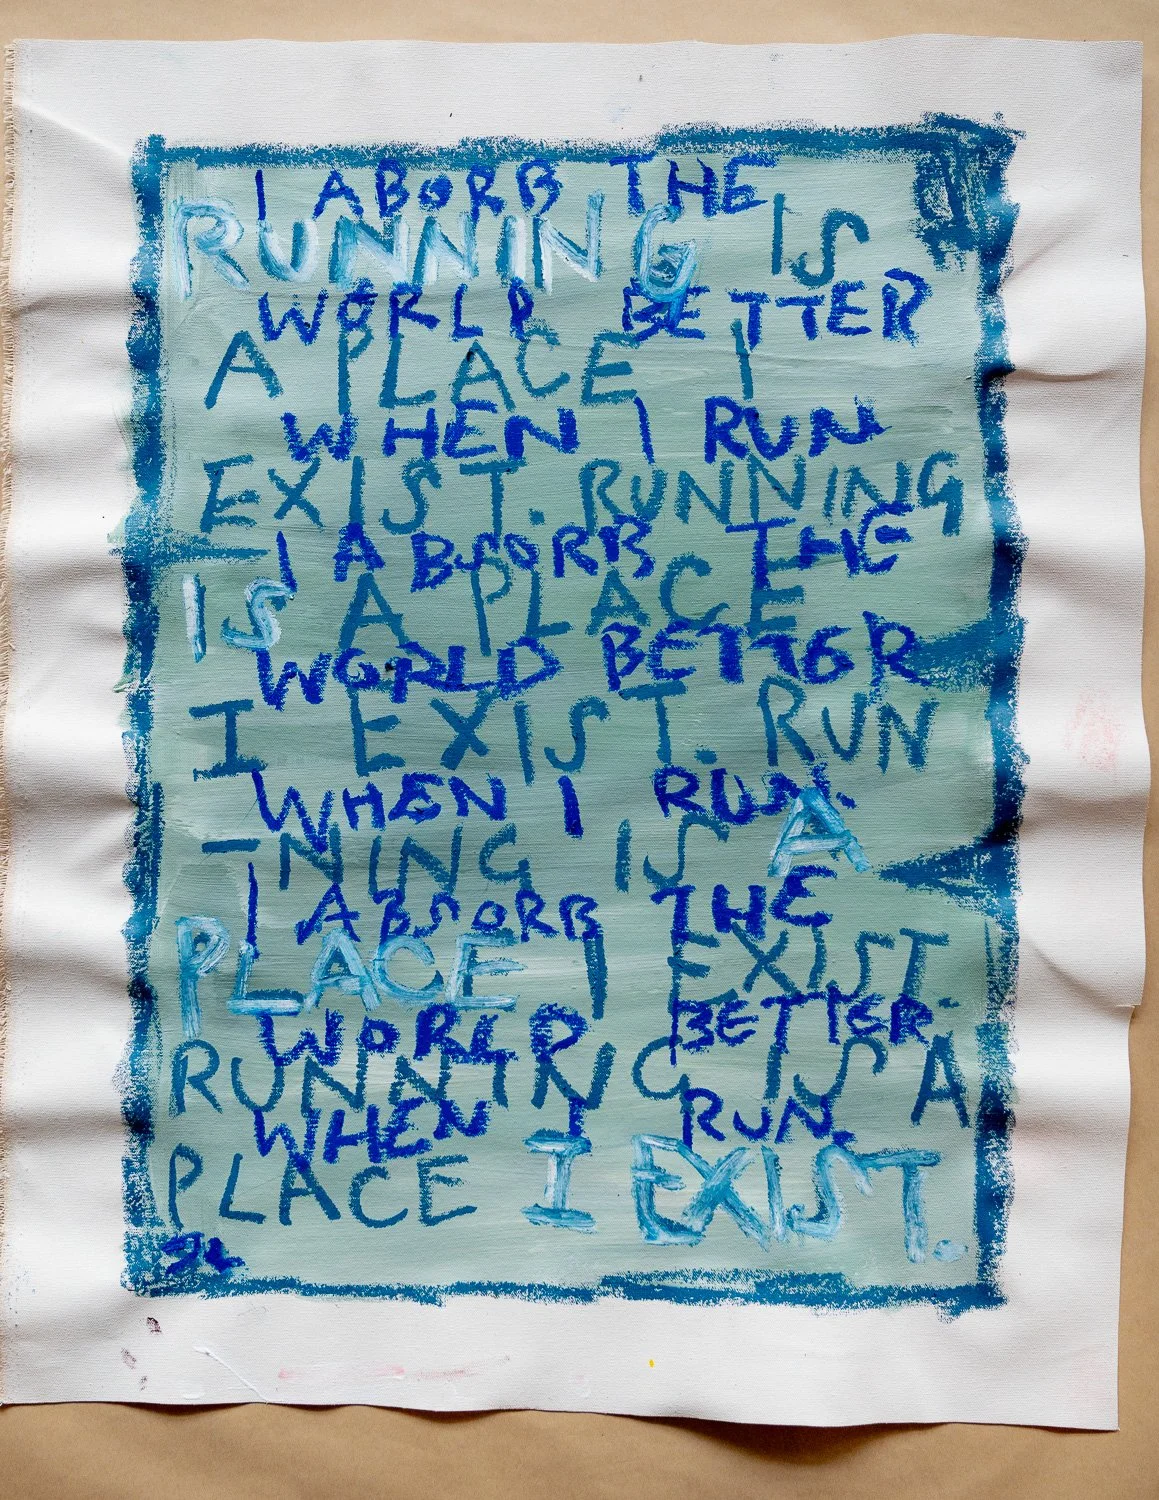 I ABORB THE
RUNNING IS
WORLD BETTER
A PLACE I
WHEN I RUN
EXIST. RUNNING
I ABSORB THE
IS A PLACE
WORLD BETTER
I EXIST. RUN
WHEN I RUN.
-NING IS A
I ABSORB THE
PLACE I EXIST.
WORLD BETTER
RUNNING IS A
WHEN I RUN.
PLACE I EXIST.